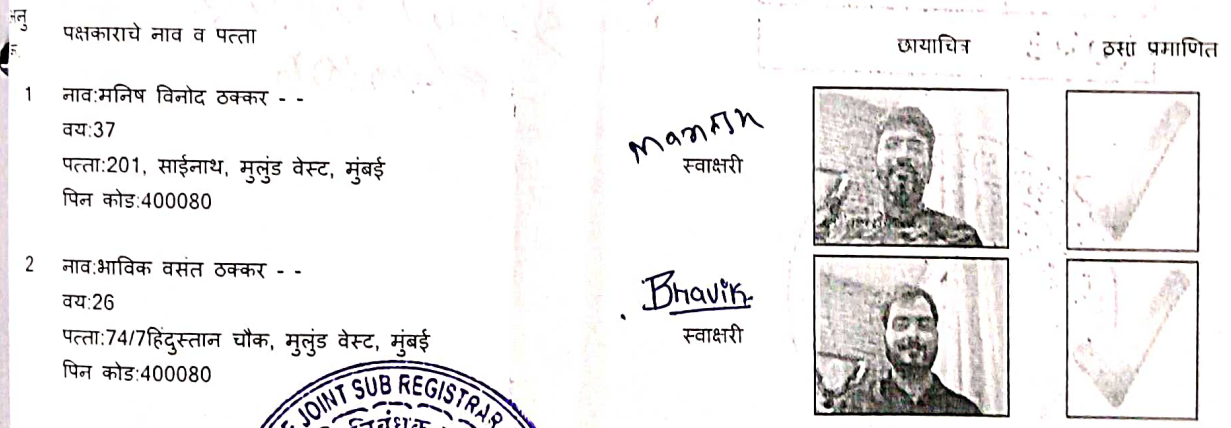 अनु
पक्षकाराचे नाव व पत्ता
छायाचित्र
ठसा प्रमाणित
1 नाव:मनिष विनोद ठक्कर - -
वय:37
पत्ता:201, साईनाथ, मुलुंड वेस्ट, मुंबई
पिन कोड:400080
Manish
स्वाक्षरी
2 नाव:भाविक वसंत ठक्कर - -
वय:26
पत्ता:74/7हिंदुस्तान चौक, मुलुंड वेस्ट, मुंबई
पिन कोड:400080
Bhavik
स्वाक्षरी
JOINT SUB REGISTRAR